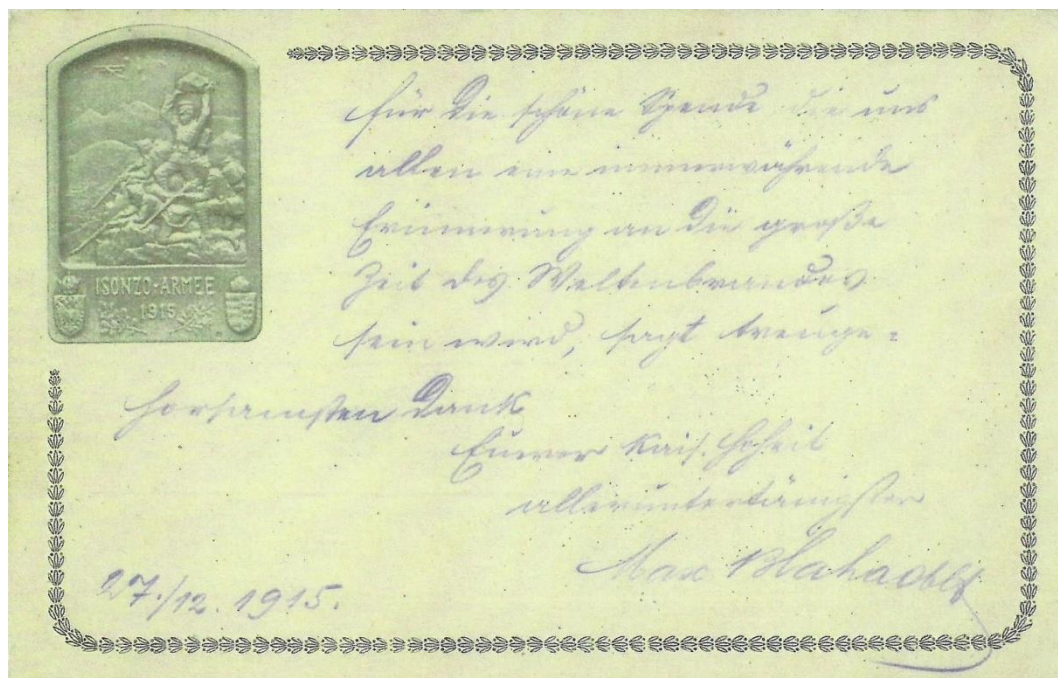 ISONZO-ARMEE
1915
für die schöne Spende die uns
allen eine immerwährende
Erinnerung an die große
Zeit des Weltenbrandes
sein wird, sagt treuge=
horsamsten Dank
Euerer Kais. Hoheit
alleruntertänigster
Max
27./12. 1915.